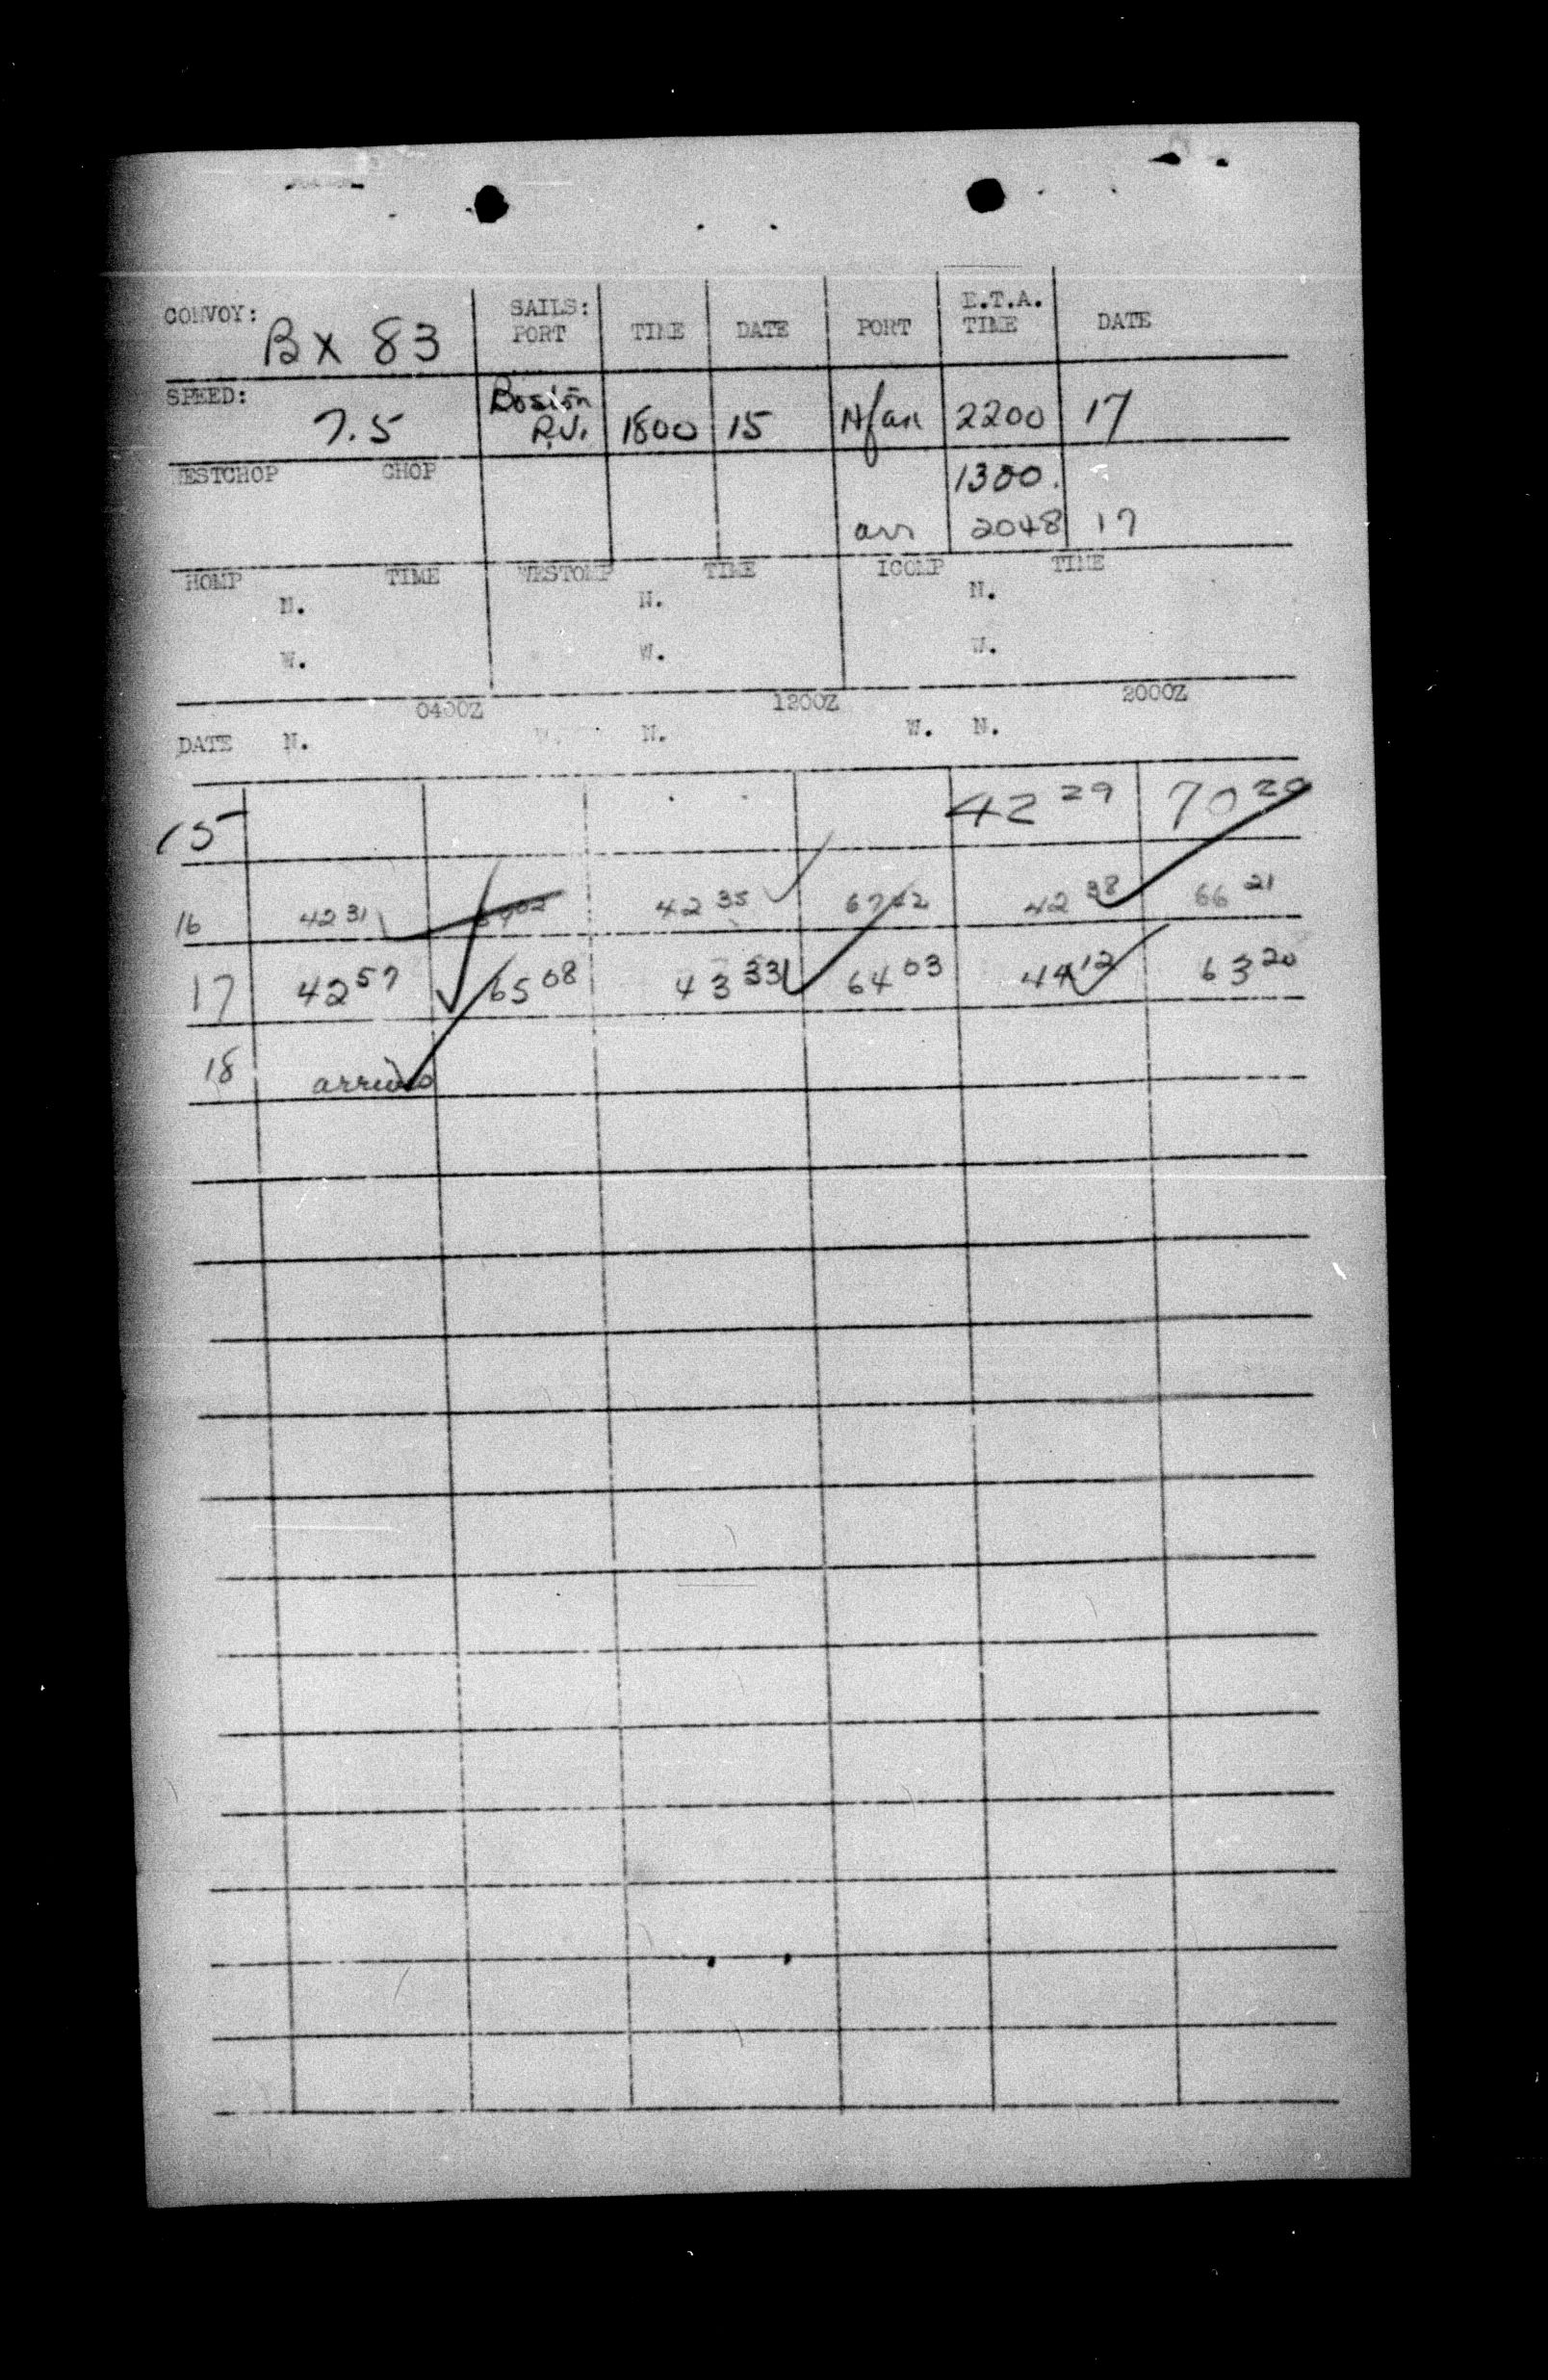 CONVOY: BX 83 SAILS: PORT TIME DATE PORT E.T.A. TIME DATE
SPEED: 7.5 Boston R.V. 1800 15 Hfax 2200 17
WESTCHOP CHOP 1300.
arr 2048 17
HOMP TIME WESTOMP TIME ICOMP TIME
N. N. N.
W. W. W.
0400Z 1200Z 2000Z
DATE N. W. N. W. N.
15 42 29 70 20
16 42 31 42 35 42 38 66 21
17 42 57 65 08 43 33 64 03 44 12 63 20
18 arrived